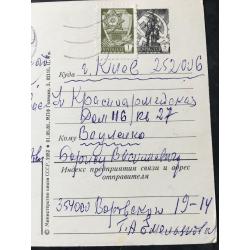 Куда
г. Киев 252006
ул Красноармейская
Дом 116, кв 27
Кому
Василенко
Борису Васильевичу
Индекс предприятия связи и адрес
отправителя
354000 Воровского 19-14
© Министерство связи СССР. 1982